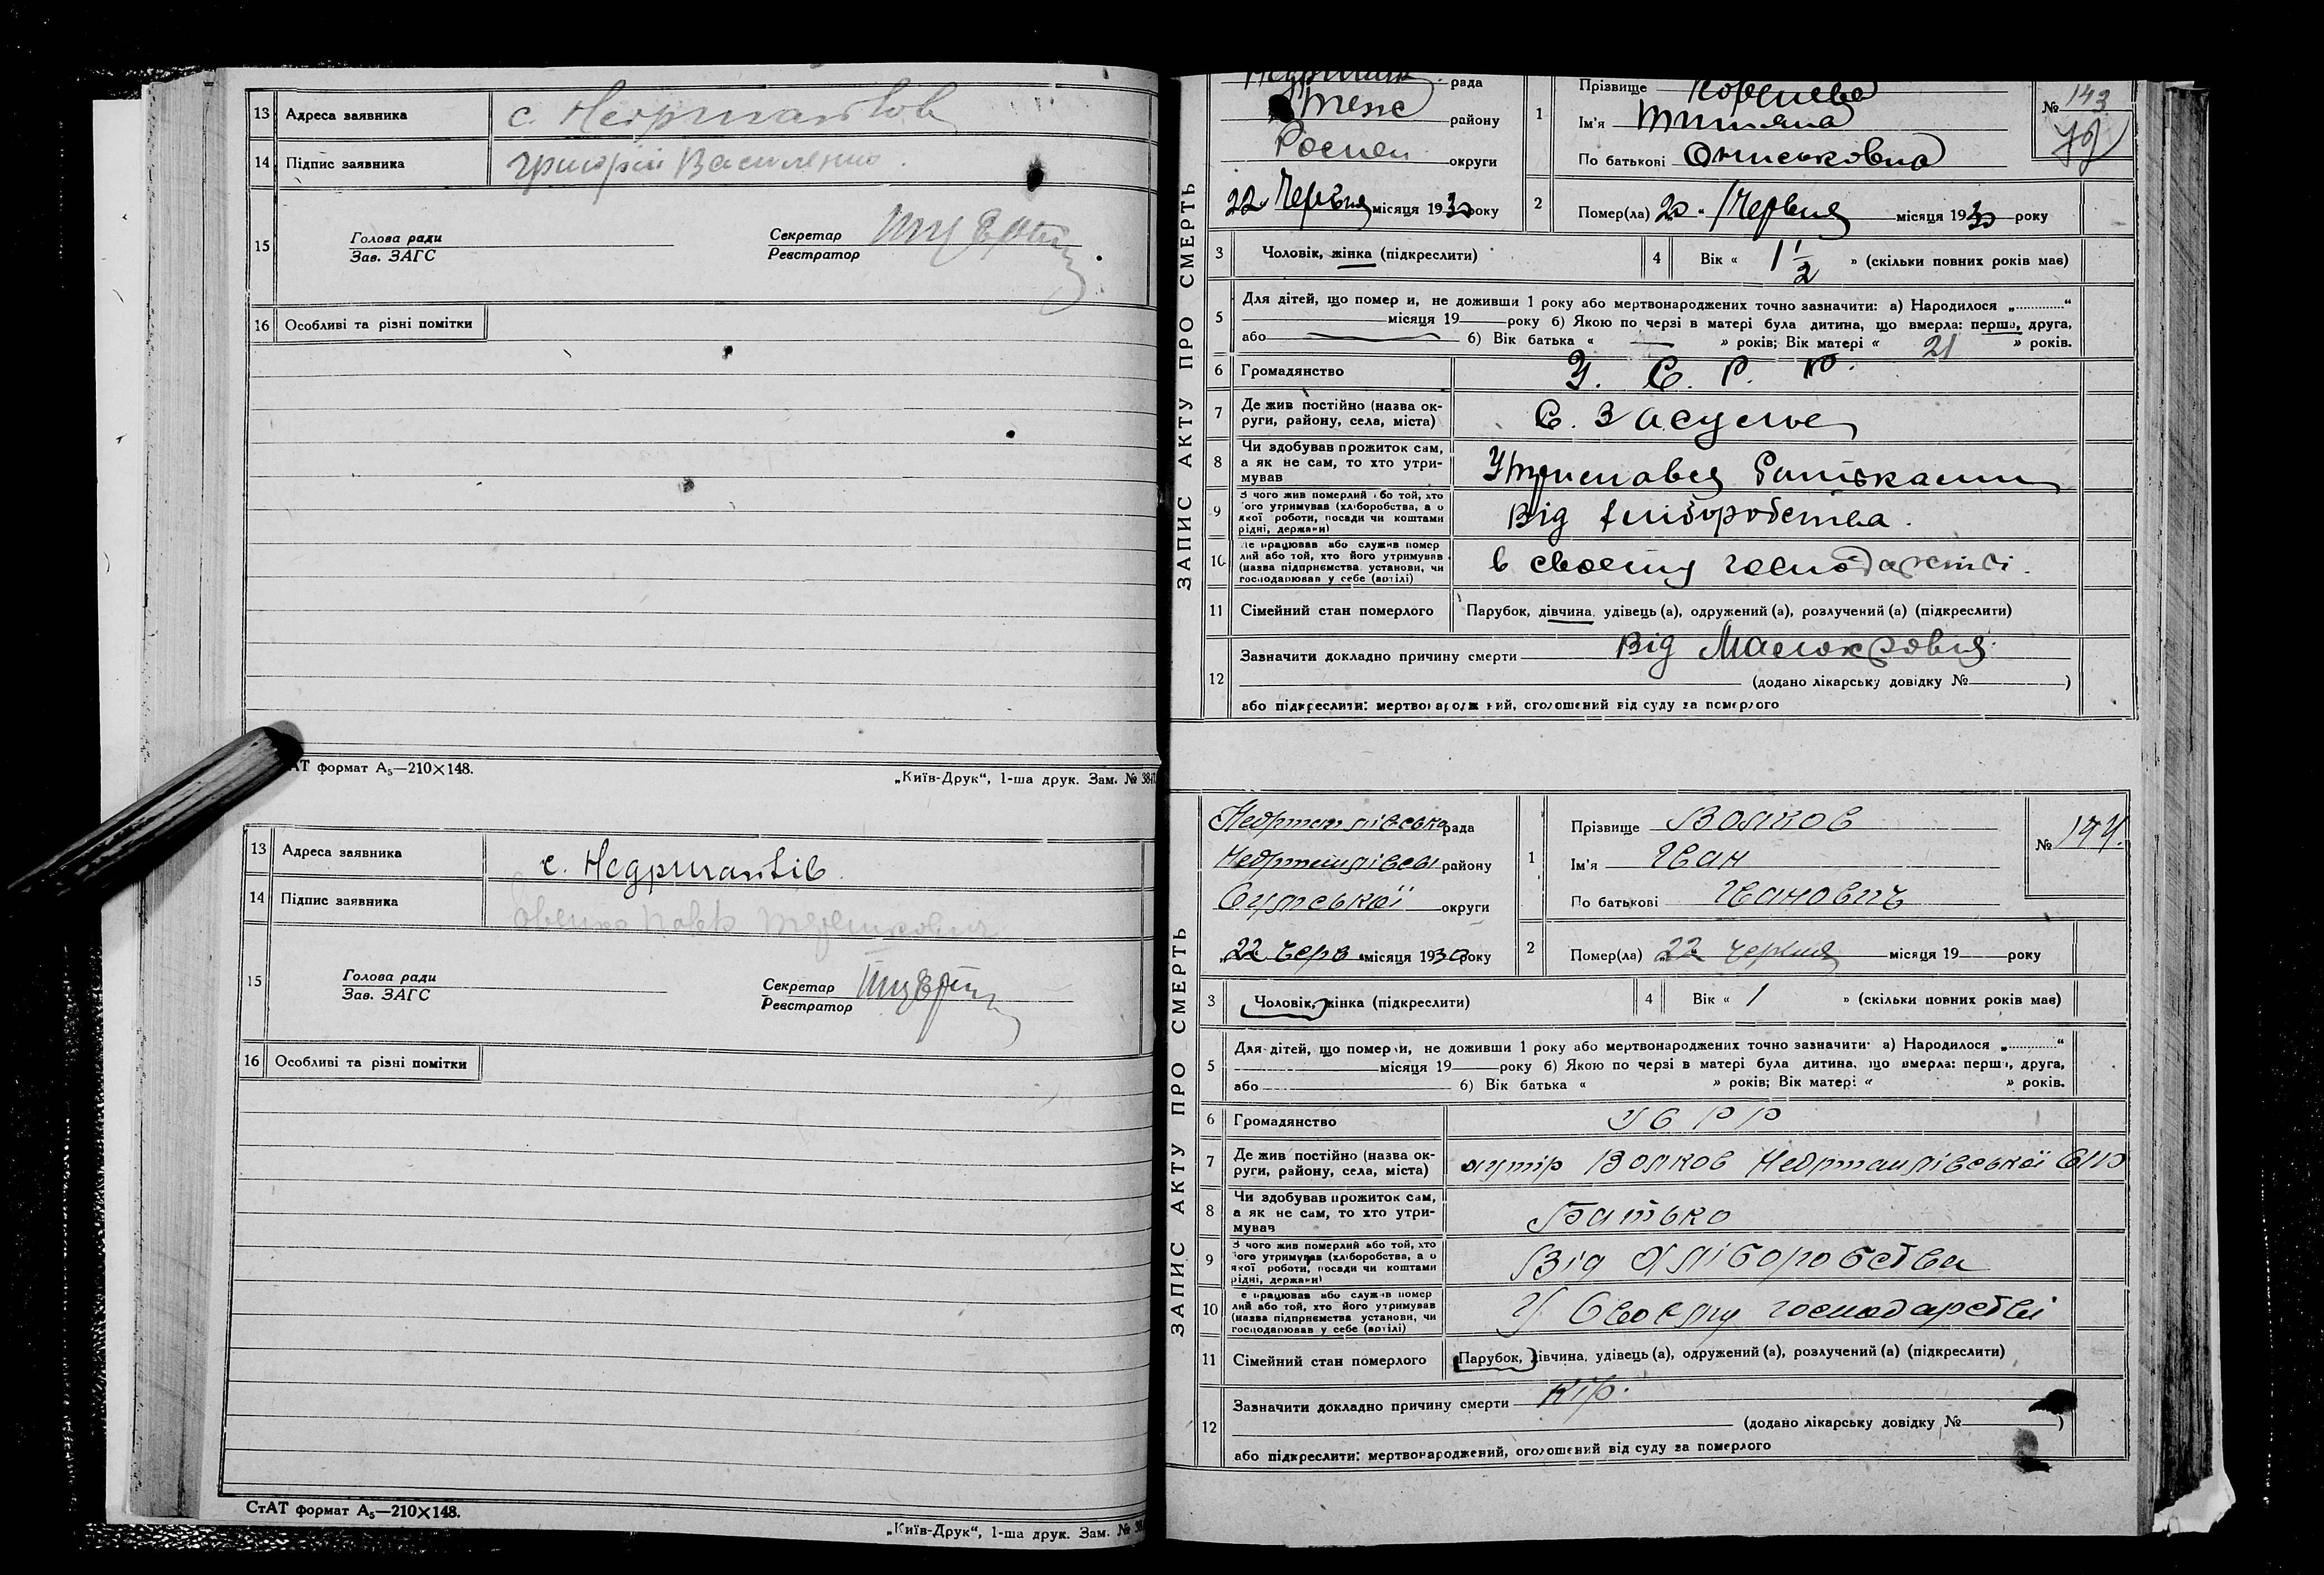 13 Адреса заявника
14 Підпис заявника Григорій Василенко
15 Голова ради
Зав. ЗАГС
Секретар
Реєстратор
16 Особливі та різні помітки
АТ формат А₅—210×148.
„Київ-Друк“, 1-ша друк. Зам. №
13 Адреса заявника с. Недригайлів
14 Підпис заявника
15 Голова ради
Зав. ЗАГС
Секретар
Реєстратор
16 Особливі та різні помітки
СтАТ формат А₅—210×148.
„Київ-Друк“, 1-ша друк. Зам. №
ЗАПИС АКТУ ПРО СМЕРТЬ
рада
району
округи
22 Червня місяця 1930 року
1 Прізвище
Ім'я
По батькові Ониськовна
№ 143
2 Помер(ла) 20 Червня місяця 1930 року
3 Чоловік, жінка (підкреслити)
4 Вік « 1 1/2 » (скільки повних років має)
5 Для дітей, що помер и, не доживши 1 року або мертвонароджених точно зазначити: а) Народилося „............“
місяця 19 року б) Якою по черзі в матері була дитина, що вмерла: перша, друга,
або б) Вік батька « — » років; Вік матері « 21 » років.
6 Громадянство У. С. Р. Р.
7 Де жив постійно (назва ок-
руги, району, села, міста) С. Засулье
8 Чи здобував прожиток сам,
а як не сам, то хто утри-
мував
9 З чого жив померлий або той, хто
його утримував (хліборобства, а о
якої роботи, посади чи коштами
рідні, держави) Від хліборобства.
10 Де працював або служив помер
лий або той, хто його утримував
(назва підприємства установи, чи
господарював у себе (артілі) в своему господарстві.
11 Сімейний стан померлого Парубок, дівчина, удівець (а), одружений (а), розлучений (а) (підкреслити)
12 Зазначити докладно причину смерти Від Малокровия.
(додано лікарську довідку № )
або підкреслити: мертвонароджений, оголошений від суду за померлого
ЗАПИС АКТУ ПРО СМЕРТЬ
Недригайлівська рада
Недригайлівськ району
Сумської округи
„22“ Черв місяця 1930 року
1 Прізвище Волков
Ім'я Іван
По батькові Іванович
№ 144.
2 Помер(ла) 22 червня місяця 19 року
3 Чоловік, жінка (підкреслити)
4 Вік « 1 » (скільки повних років має)
5 Для дітей, що померли, не доживши 1 року або мертвонароджених точно зазначити: а) Народилося „............“
місяця 19 року б) Якою по черзі в матері була дитина, що вмерла: перша, друга,
або б) Вік батька « » років; Вік матері « » років.
6 Громадянство УСРР
7 Де жив постійно (назва ок-
руги, району, села, міста) хутір Волков Недригайлівської
8 Чи здобував прожиток сам,
а як не сам, то хто утри-
мував Батько
9 З чого жив померлий або той, хто
його утримував (хліборобства, а о
якої роботи, посади чи коштами
рідні, держави) Від хліборобства
10 е працював або служив помер
лий або той, хто його утримував
(назва підприємства установи, чи
господарював у себе (артілі) У своєму господарстві
11 Сімейний стан померлого Парубок, дівчина, удівець (а), одружений (а), розлучений (а) (підкреслити)
12 Зазначити докладно причину смерти Кір.
(додано лікарську довідку № )
або підкреслити: мертвонароджений, оголошений від суду за померлого